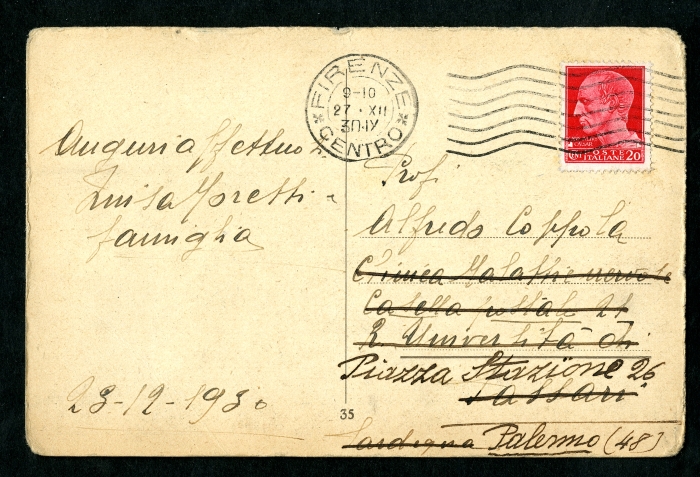 FIRENZE
9-10
27 · XII
30·IX
CENTRO
CAESAR
POSTE
ITALIANE 20
Auguri affettuo
Luisa Moretti e
famiglia
23-12-1930
Prof
Alfredo Coppola
Clinica Malattie nervose
Casella postale 21
R. Università di
Piazza Stazione 26
Sassari
Sardegna Palermo (48)
35